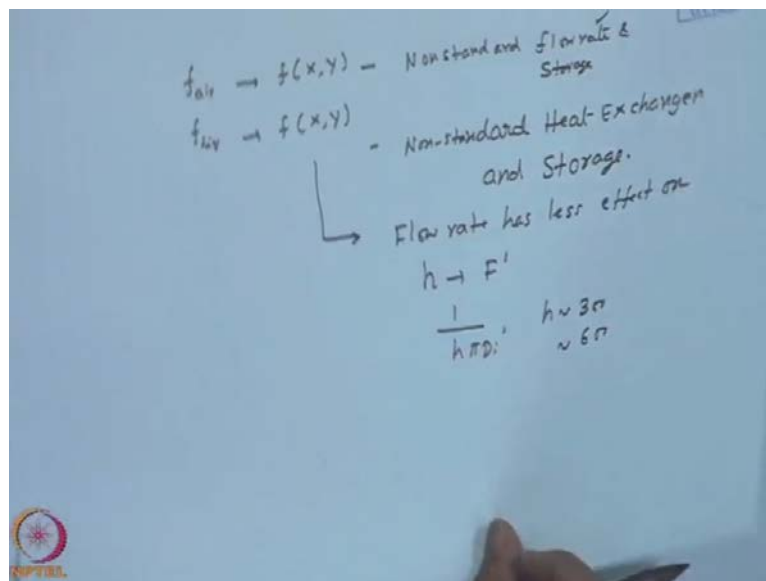 f_air → f(x,y) - Nonstandard flow rate &
Storage
f_liq → f(x,y)
- Non-standard Heat-Exchanger
and Storage.
Flow rate has less effect on
h → F'
1 / hπDi, h ~ 300
~ 600
NPTEL